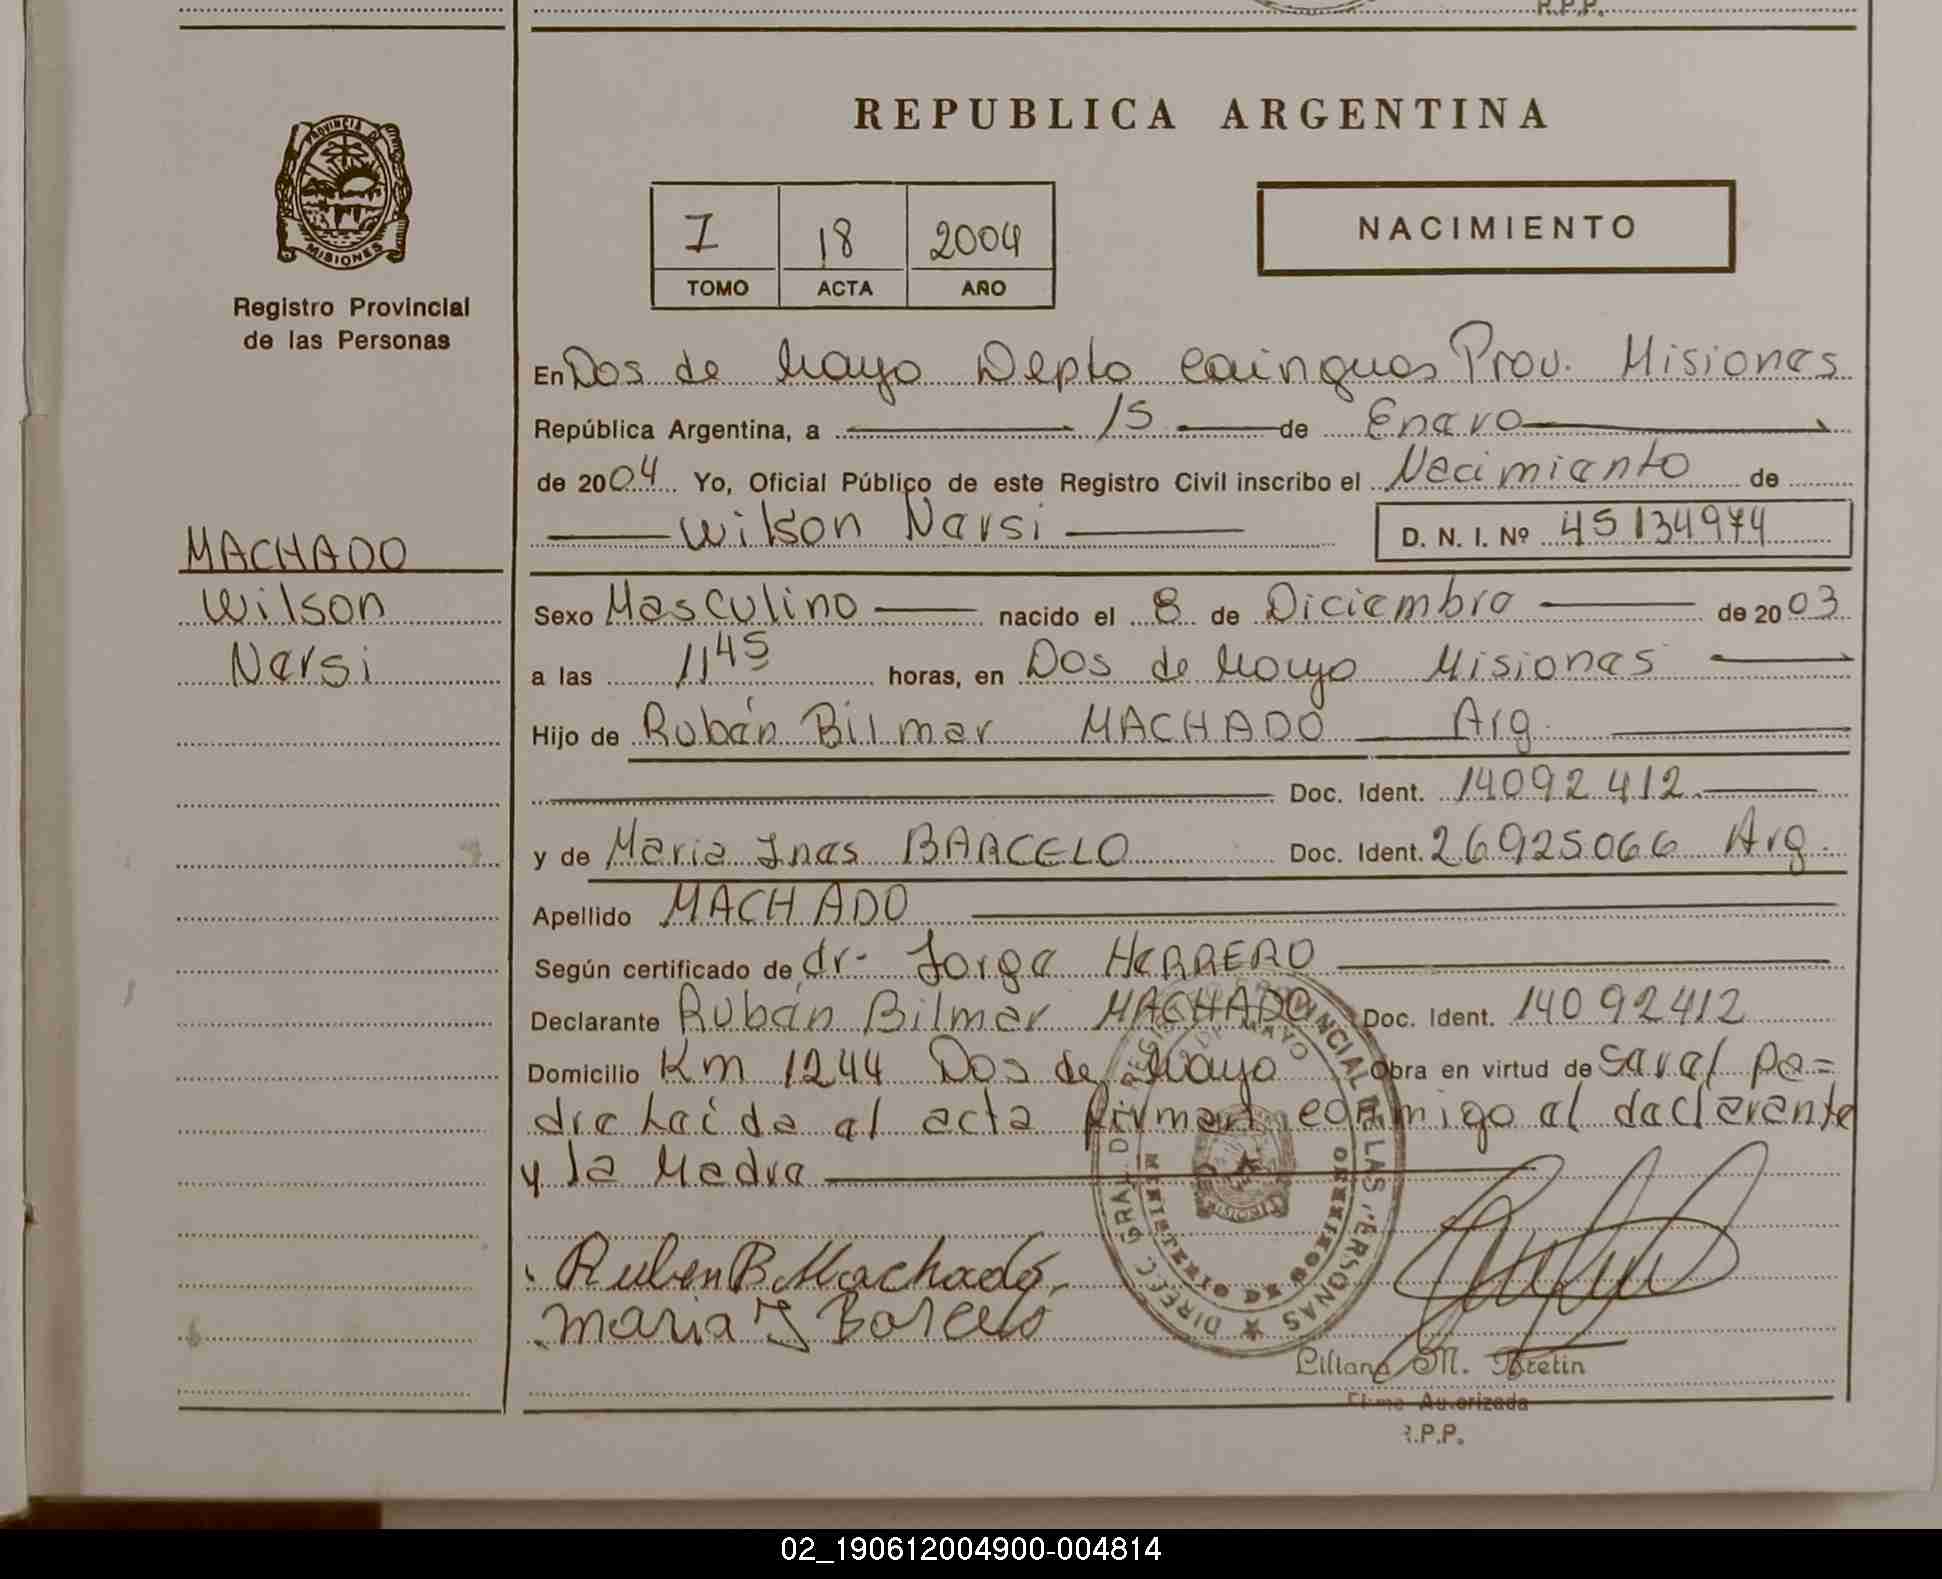 R.P.P.
REPUBLICA ARGENTINA
PROVINCIA DE
MISIONES
Registro Provincial
de las Personas
I 18 2004
TOMO ACTA AÑO
NACIMIENTO
En Dos de Mayo Depto Cainguas Prov. Misiones
República Argentina, a 15 de Enero
de 2004 Yo, Oficial Público de este Registro Civil inscribo el Nacimiento de
Wilson Nersi D. N. I. Nº 45134974
MACHADO
Wilson
Nersi
Sexo Masculino nacido el 8 de Diciembre de 2003
a las 11 45 horas, en Dos de Mayo Misiones
Hijo de Rubén Bilmar MACHADO Arg.
Doc. Ident. 14092412
y de Maria Ines BARCELO Doc. Ident. 26925066 Arg.
Apellido MACHADO
Según certificado de dr. Jorge HERRERO
Declarante Rubén Bilmar MACHADO Doc. Ident. 14092412
Domicilio Km 1244 Dos de Mayo Obra en virtud de ser el pa=
dre Leída al acta firman conmigo el declarante
y la Madre
Ruben B Machado
Maria I Barcelo
DIREC. GRAL. DE REGISTRO PROVINCIAL DE LAS PERSONAS
DOS DE MAYO
MINISTERIO DE GOBIERNO
Liliana M. Bretin
Firma Autorizada
R.P.P.
02_190612004900-004814